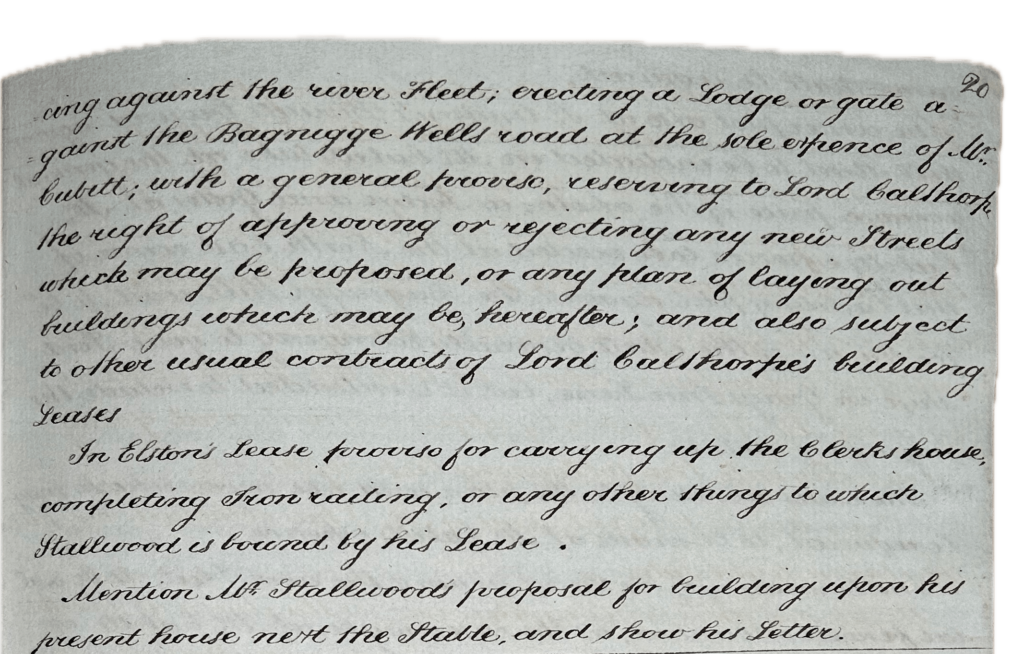 20
cing against the river Fleet; erecting a Lodge or gate a=
=gainst the Bagnigge Wells road at the sole expence of Mr.
Cubitt; with a general proviso, reserving to Lord Calthorpe
the right of approving or rejecting any new Streets
which may be proposed, or any plan of laying out
buildings which may be, hereafter; and also subject
to other usual contracts of Lord Calthorpe's building
Leases
In Elston's Lease proviso for carrying up the Clerks house,
completing Iron railing, or any other things to which
Stallwood is bound by his Lease.
Mention Mr. Stallwood's proposal for building upon his
present house next the Stable, and show his Letter.